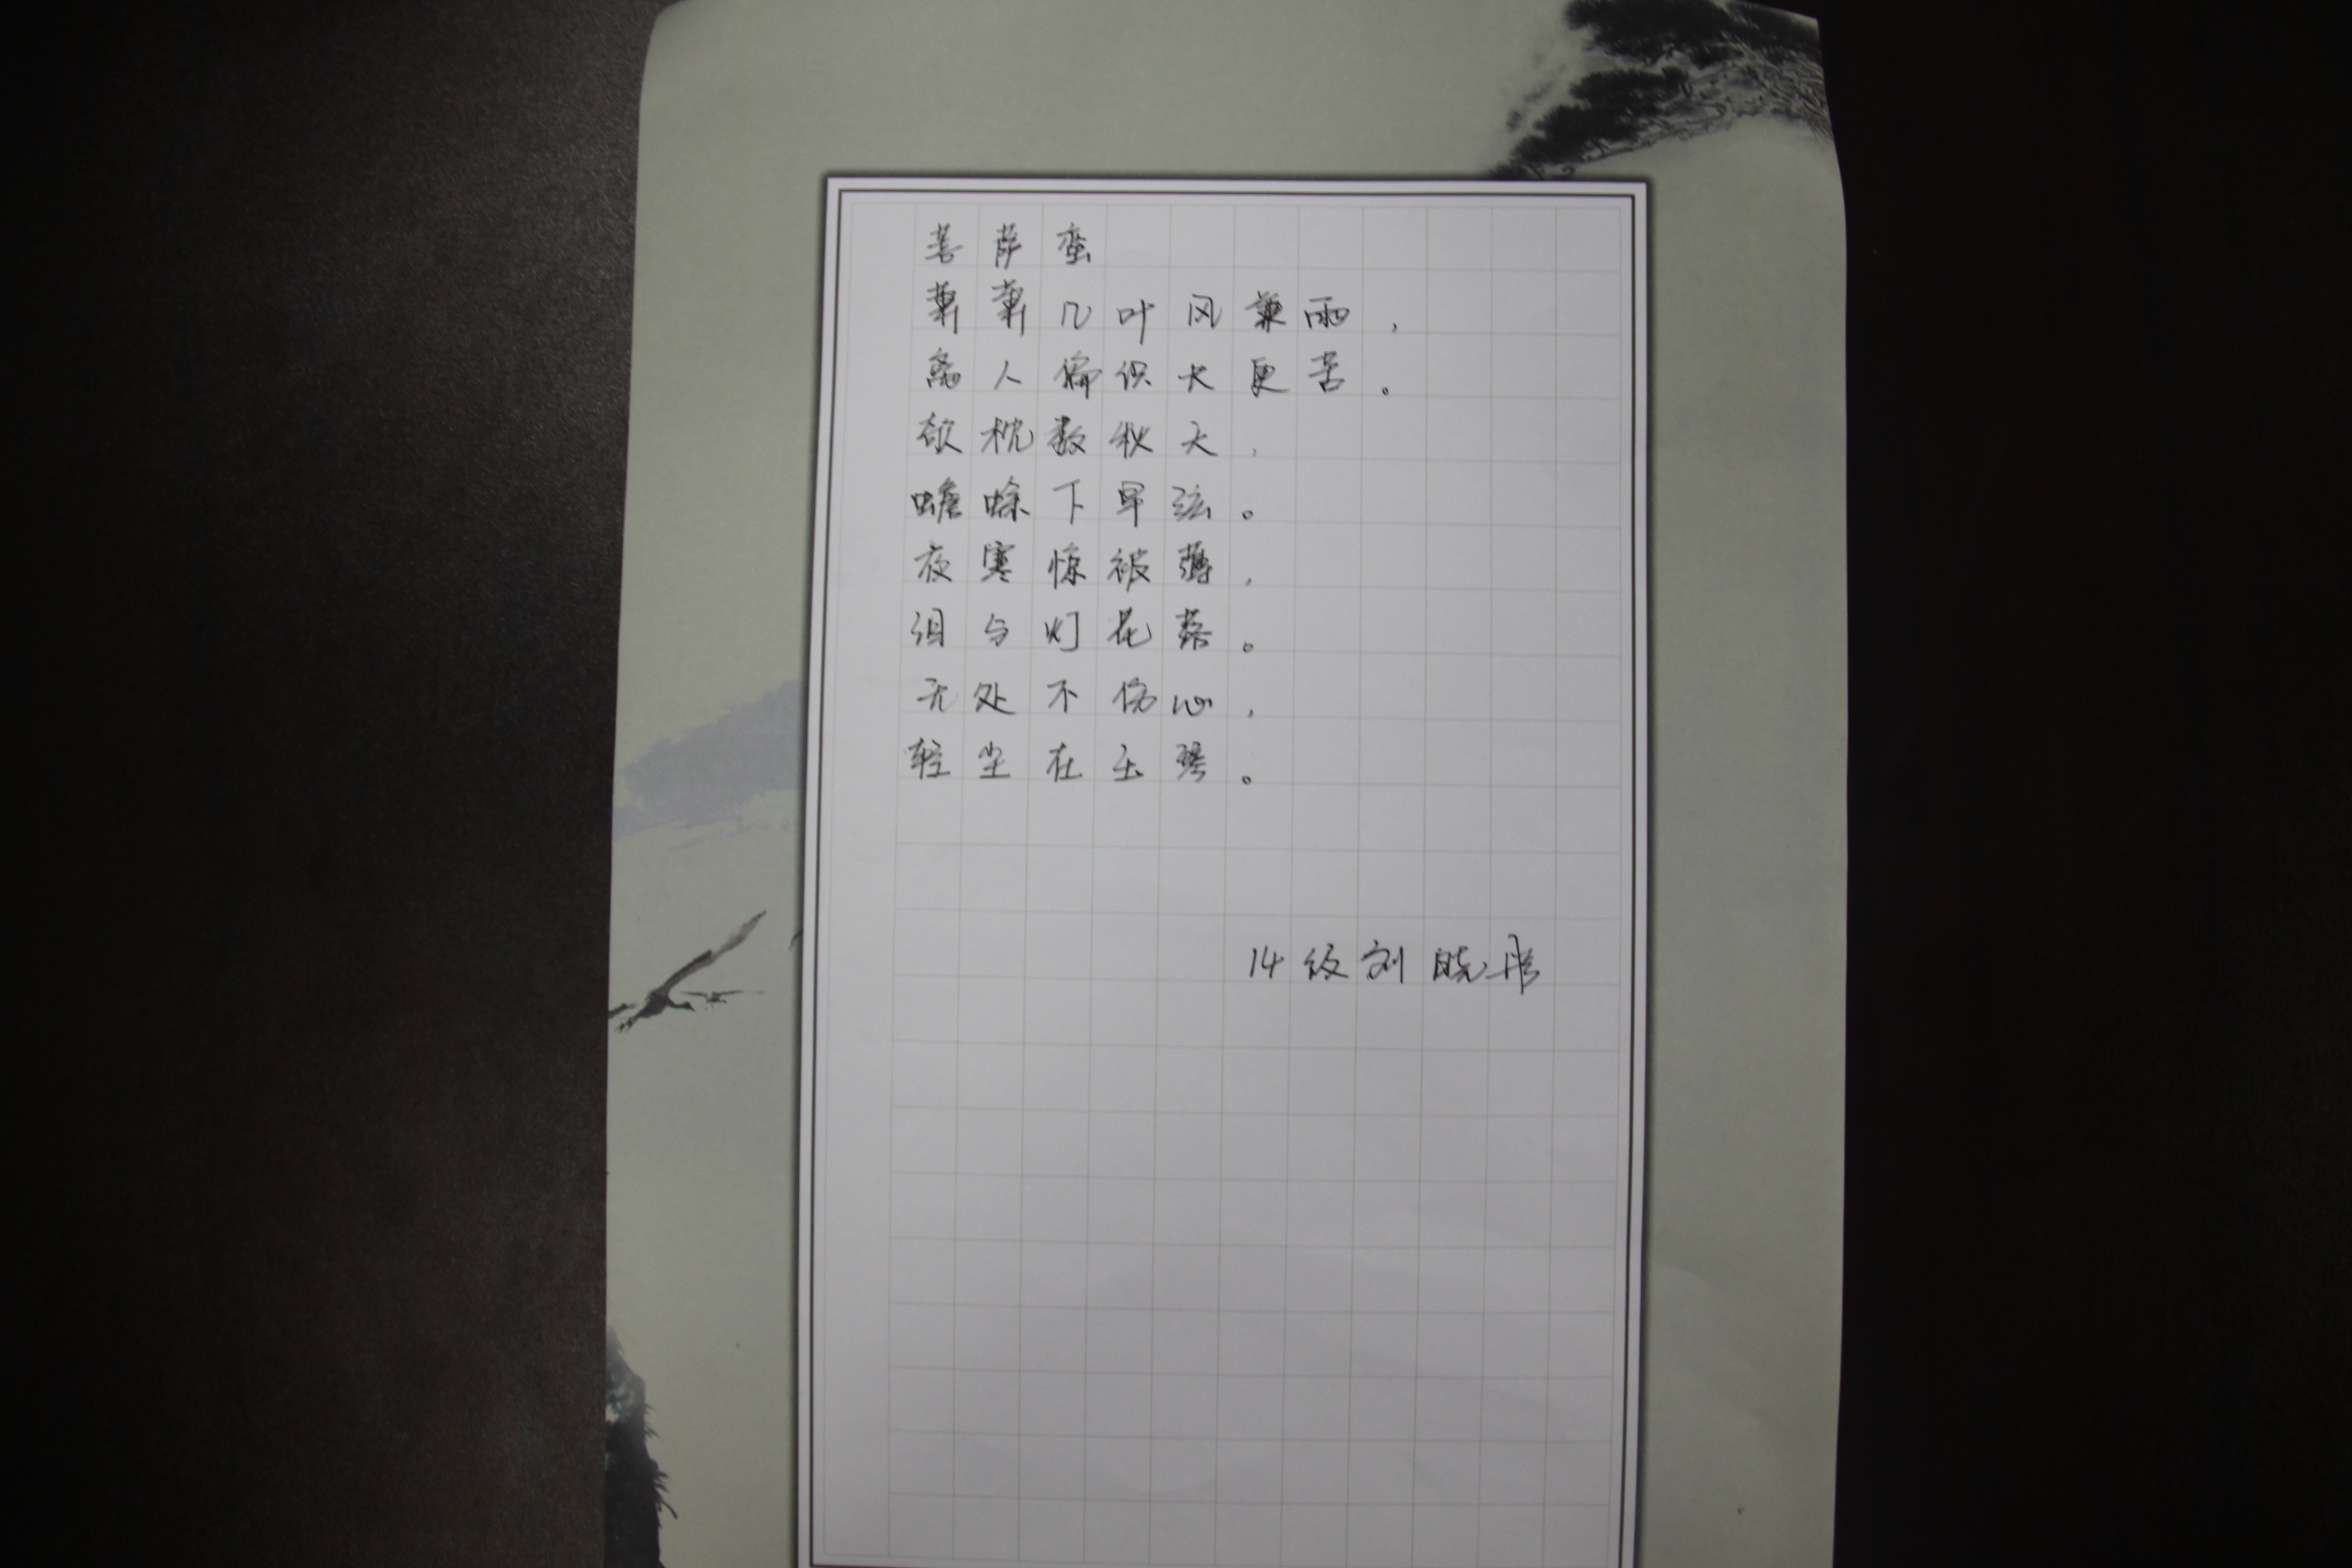 菩萨蛮
萧萧几叶风兼雨，
离人偏识长更苦。
欹枕数秋天，
蟾蜍下早弦。
夜寒惊被薄，
泪与灯花落。
无处不伤心，
轻尘在玉琴。
14级刘晓彤